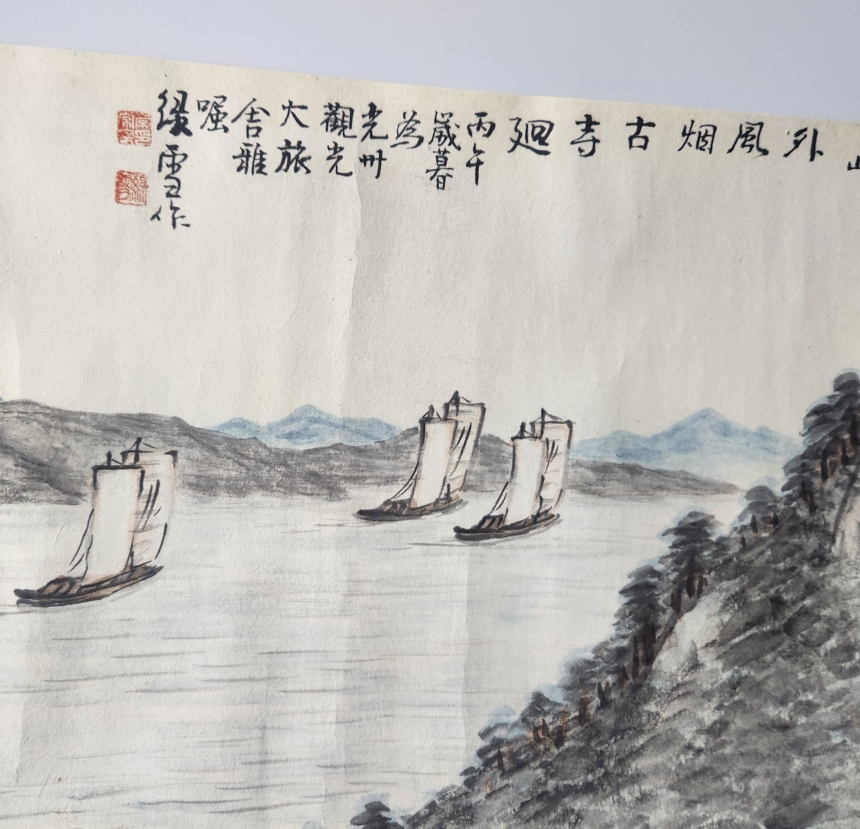 山外風烟古寺廻
丙午
歲暮
為
光州
觀光
大旅
舍雅
嘱
綠雪作